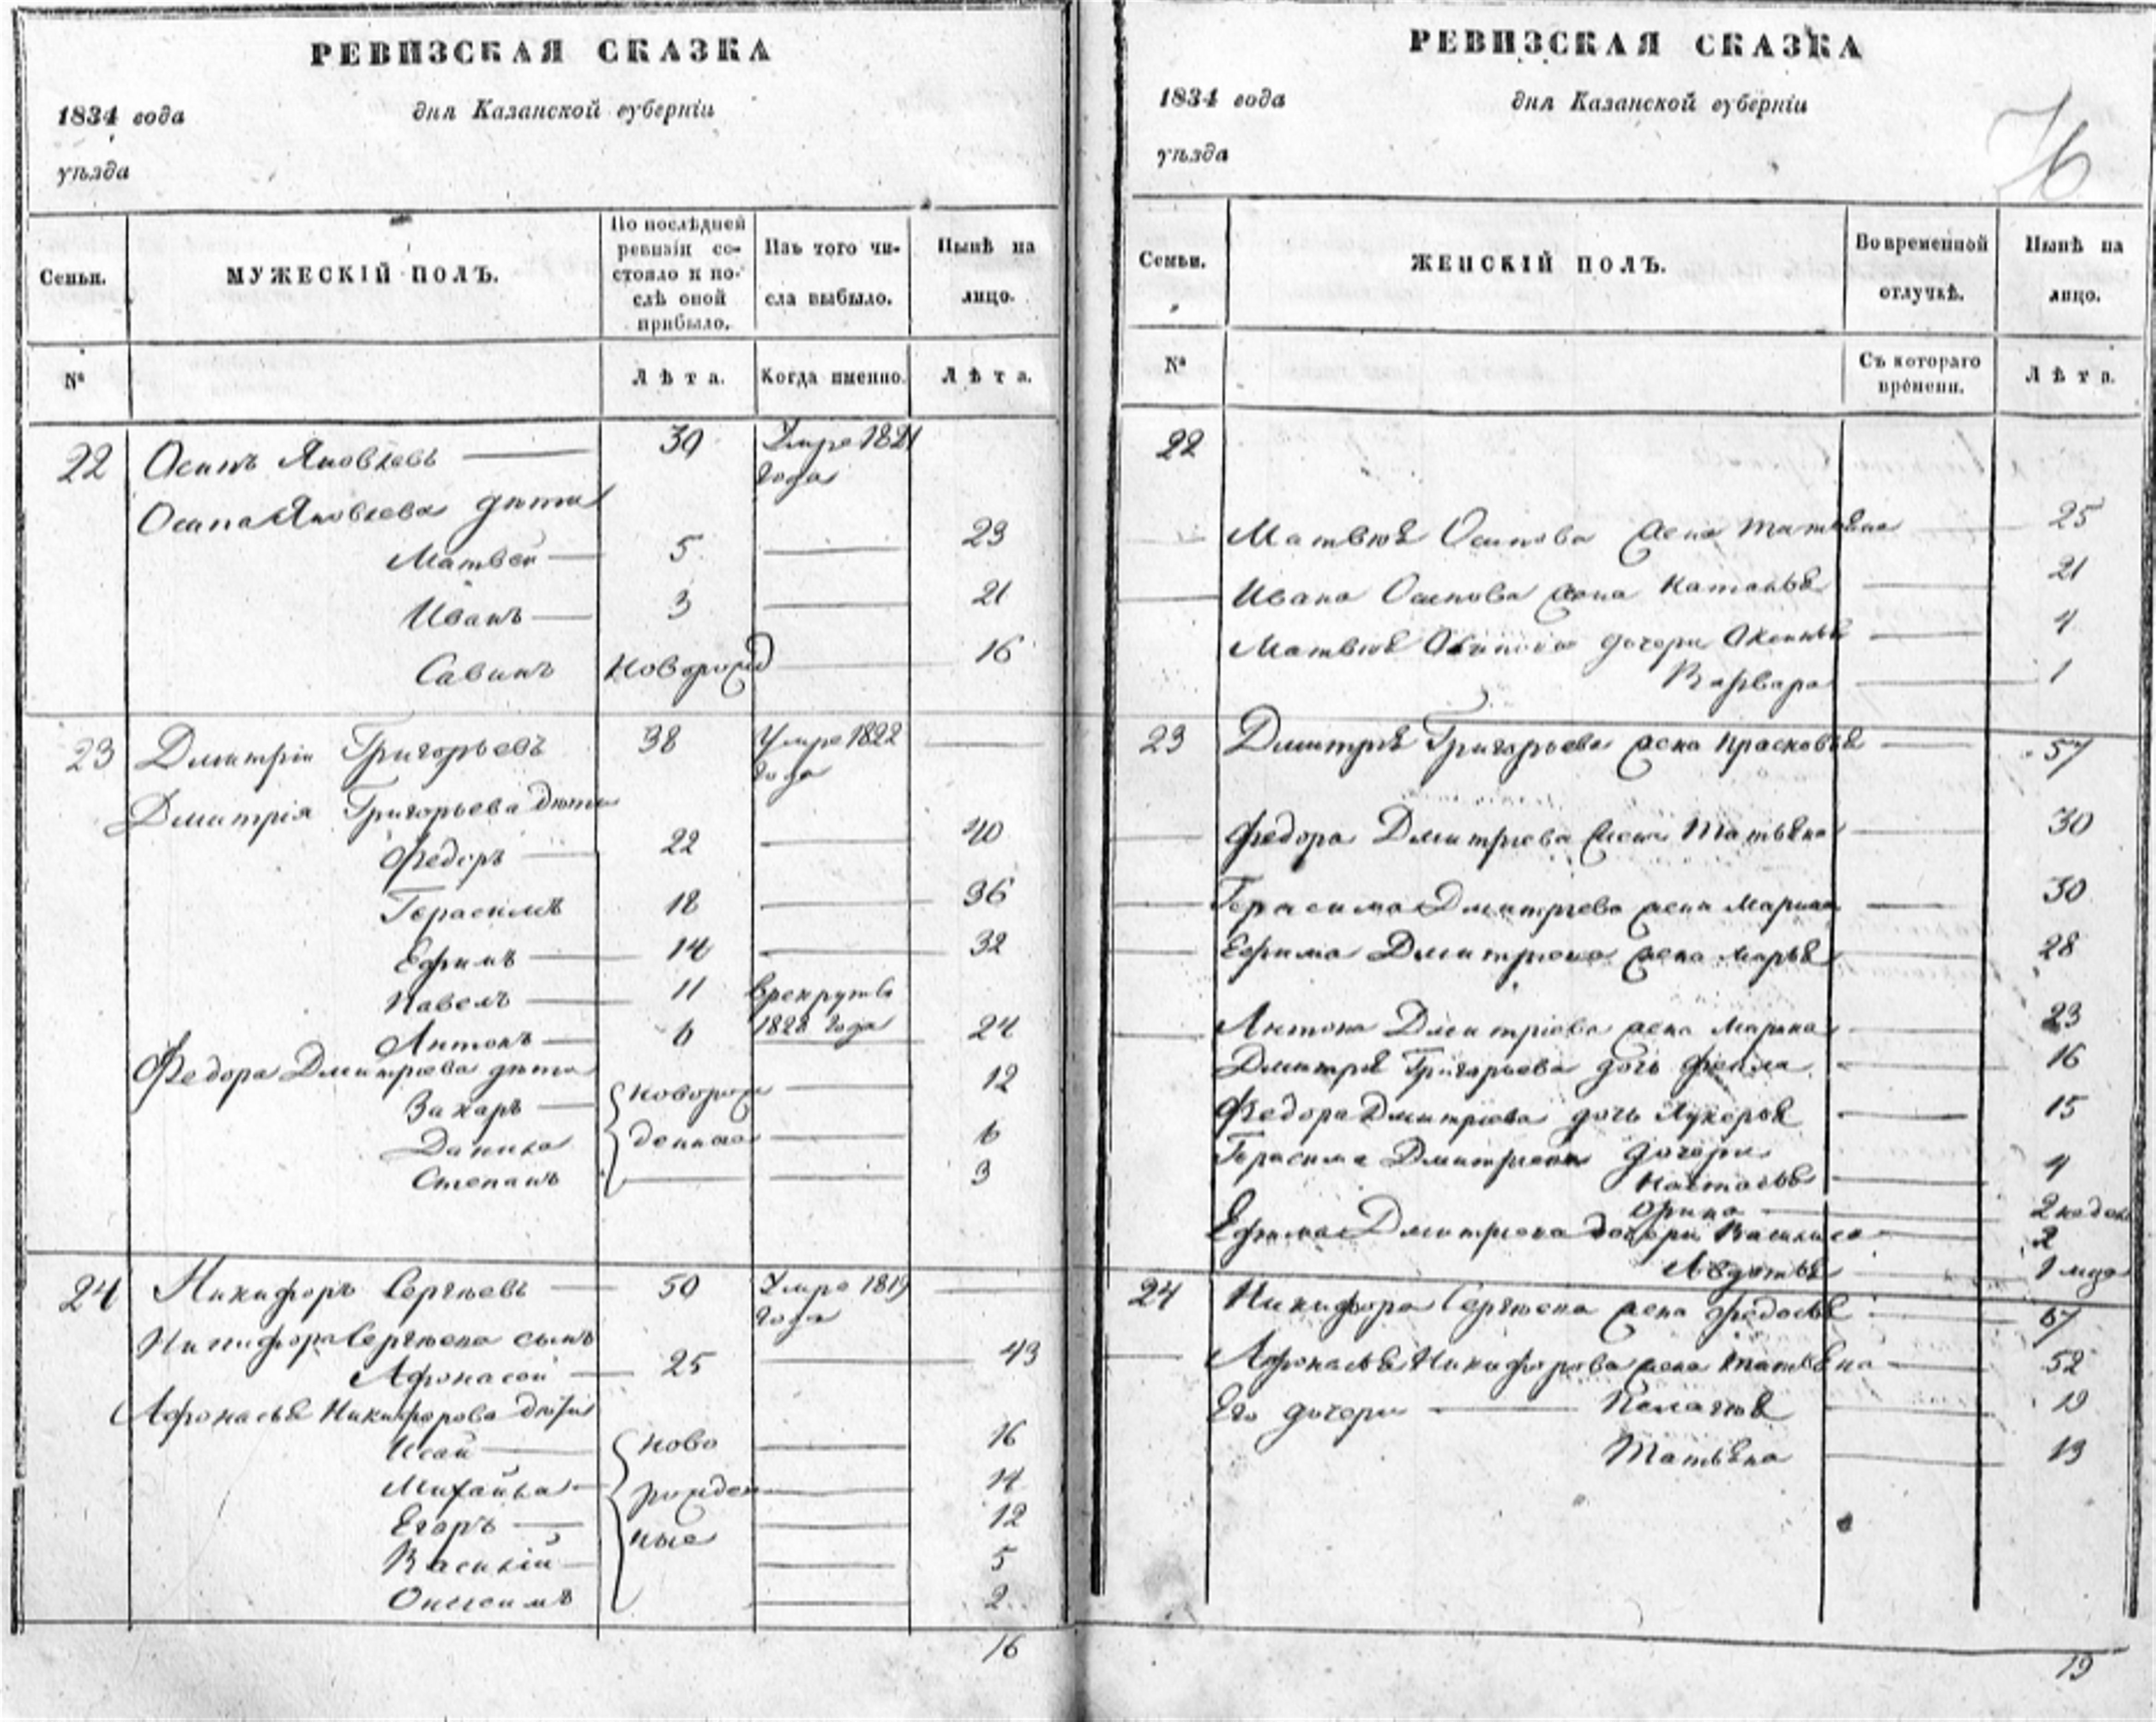 РЕВИЗСКАЯ СКАЗКА
1834 года
для Казанской губерніи
уѣзда
Семьи.
МУЖЕСКІЙ ПОЛЪ.
По послѣдней ревизіи состояло и послѣ оной прибыло.
Изъ того числа выбыло.
Нынѣ на лицо.
№
Лѣта.
Когда именно.
Лѣта.
22 Осипъ Яковлевъ 30 Умре 1821
года
Осипа Яковлева дѣти
Матвей 5 23
Иванъ 3 21
Савинъ Новорожд 16
23 Дмитріи Григорьевъ 38 Умре 1822
года
Дмитрія Григорьева дѣти
Федоръ 22 40
Герасимъ 18 36
Ефимъ 14 32
Павелъ 11 в рекруты
Антонъ 6 1828 года 24
Федора Дмитріева дѣти
Захаръ новорож 12
Данила денные 6
Степанъ 3
24 Никифоръ Сергѣевъ 50 Умре 1819
года
Никифора Сергѣева сынъ
Афонасей 25 43
Афонасья Никифорова дѣти
Исай ново 16
Михайла рожден 14
Егоръ ные 12
Василій 5
Онисимъ 2
16
РЕВИЗСКАЯ СКАЗКА
76
1834 года
для Казанской губерніи
уѣзда
Семьи.
ЖЕНСКІЙ ПОЛЪ.
Во временной отлучкѣ.
Нынѣ на лицо.
№
Съ котораго времени.
Лѣта.
22
Матвѣя Осипова жена Татьяна 25
Ивана Осипова жена Наталья 21
Матвѣя Осипова дочери Аксинья 4
Варвара 1
23 Дмитрія Григорьева жена Прасковья 57
Федора Дмитріева жена Татьяна 30
Герасима Дмитріева жена 30
Ефима Дмитріева жена Марья 28
Антона Дмитріева жена 23
Дмитрія Григорьева дочь Фекла 16
Федора Дмитріева дочь Лукерья 15
Герасима Дмитріева дочери
Настасья 4
Орина 2 недел
Ефима Дмитріева дочери Василиса 2
Авдотья 1
24 Никифора Сергѣева жена Федосья 67
Афонасья Никифорова жена Татьяна 52
Его дочери Пелагея 19
Татьяна 13
19